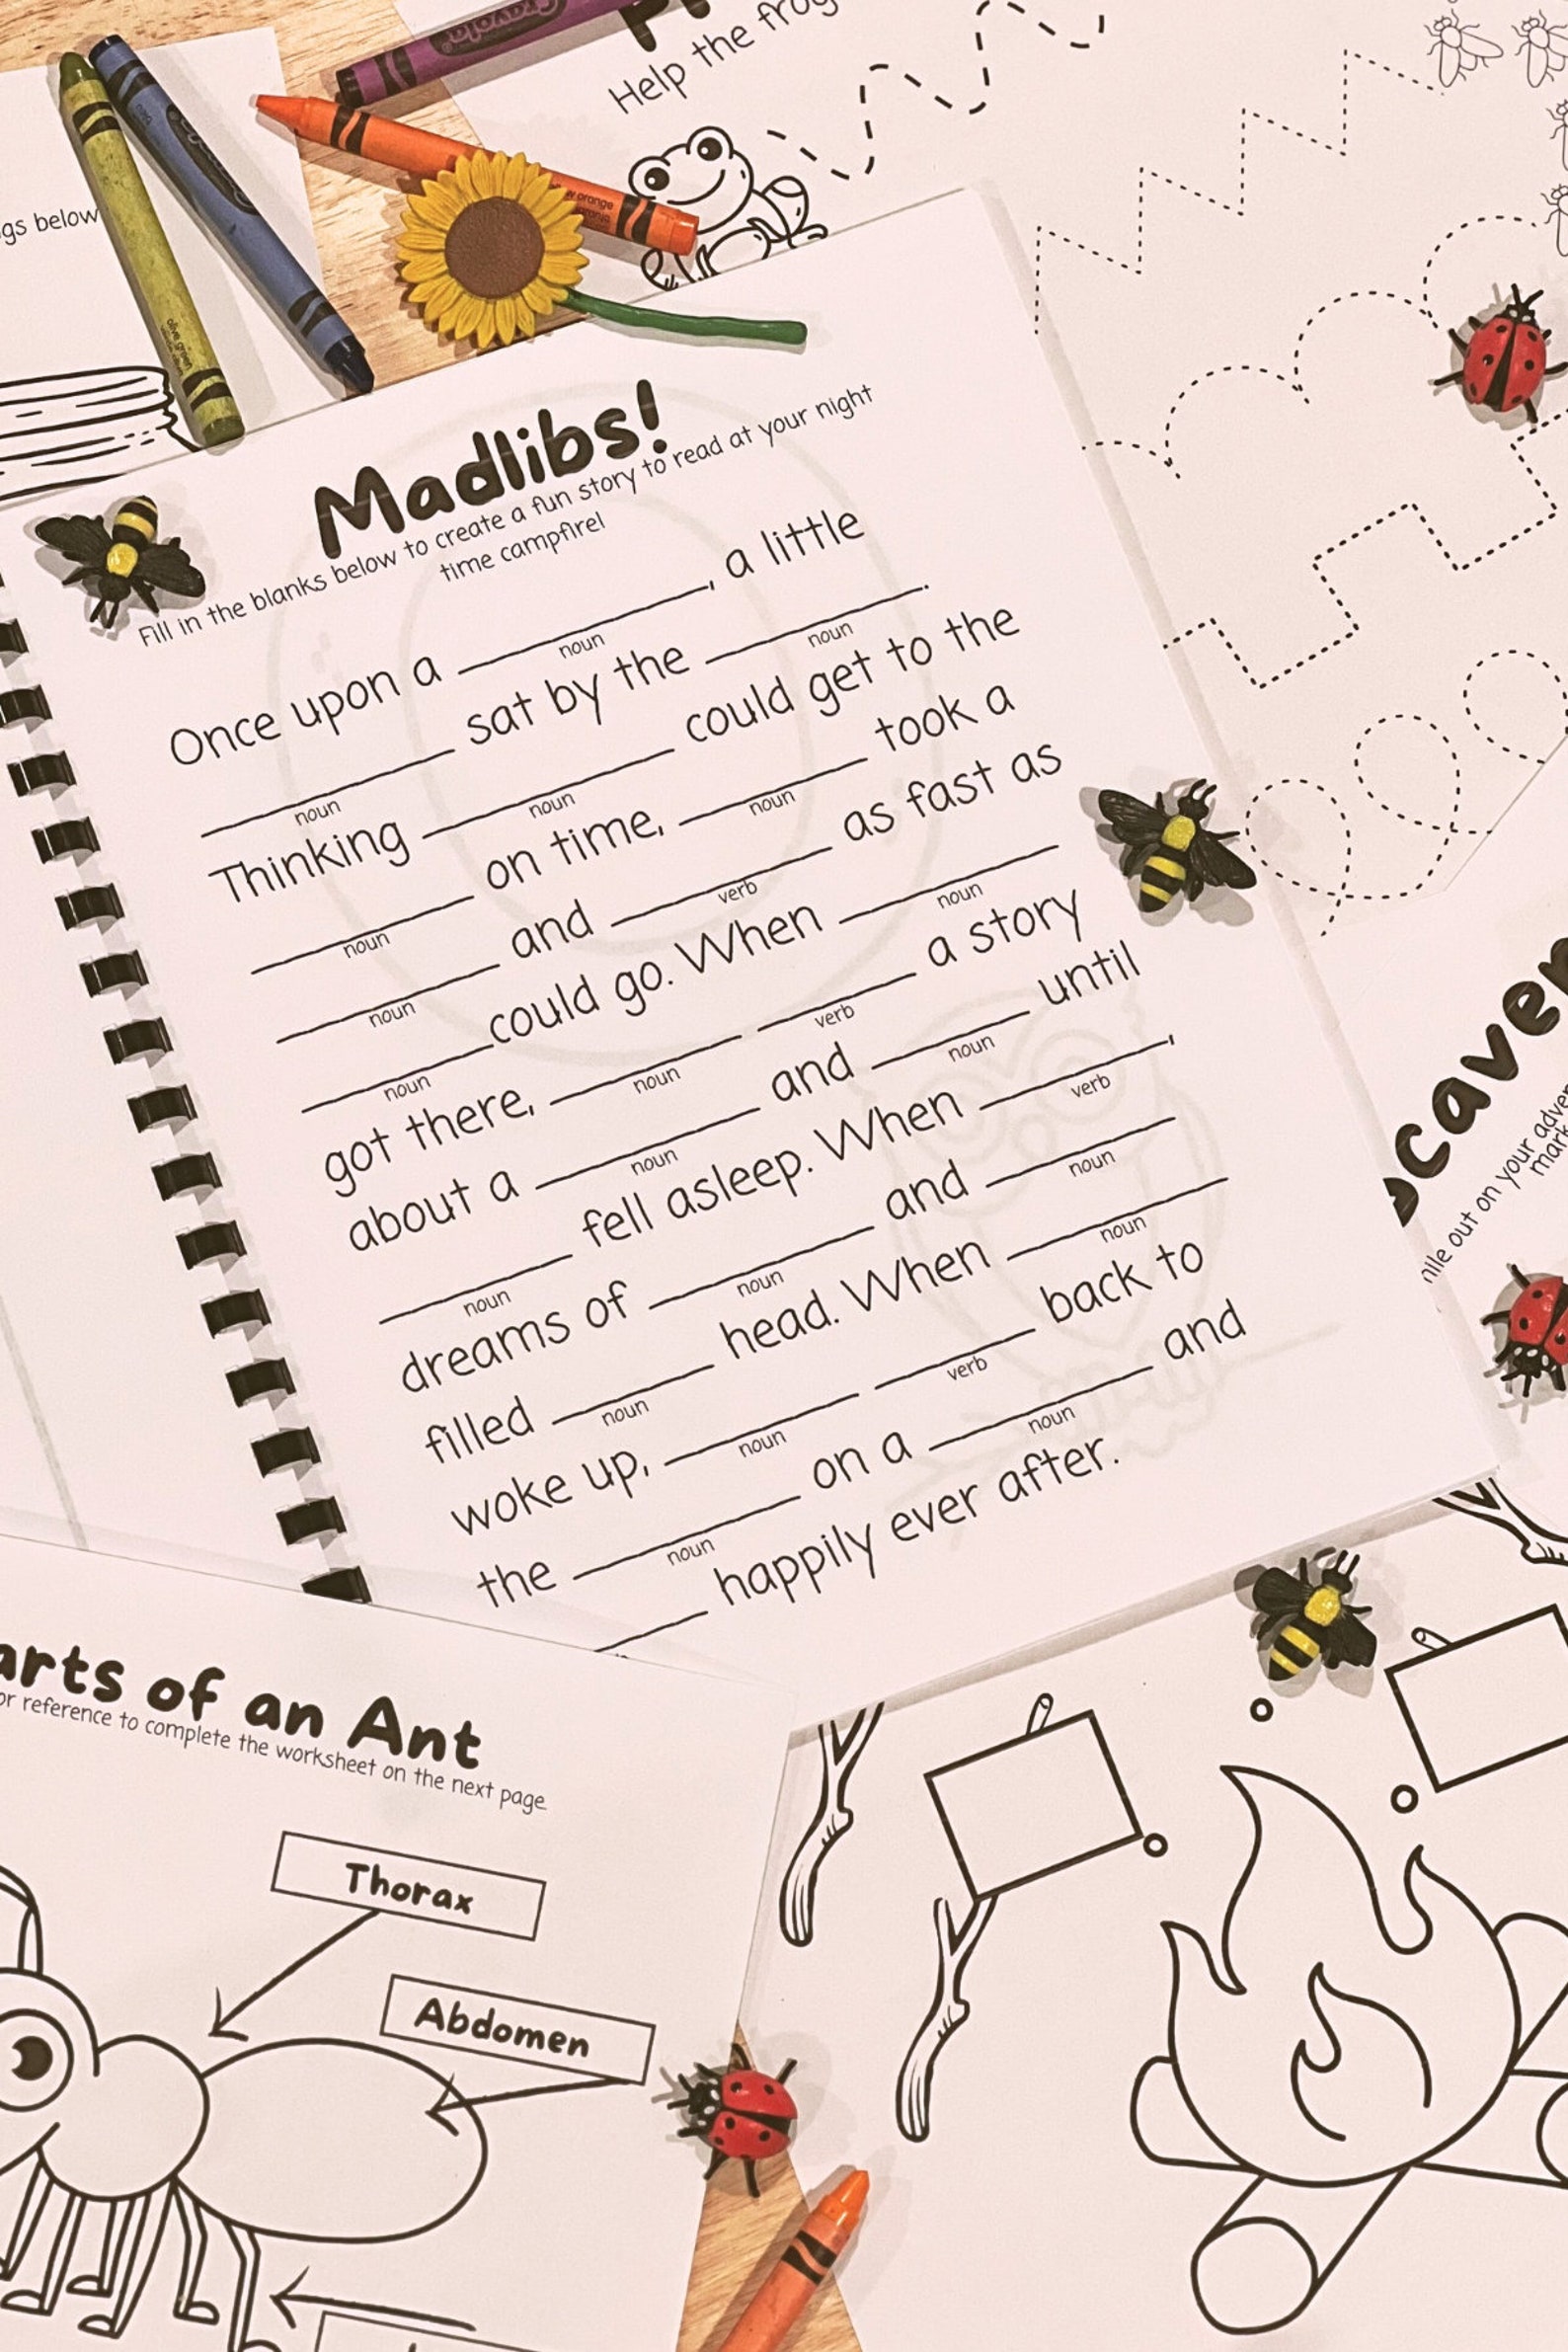 Help the frog
gs below
olive green
orange
Madlibs!
Fill in the blanks below to create a fun story to read at your night
time campfire!
Once upon a ________, a little
noun
________ sat by the ________.
noun noun
Thinking ________ could get to the
noun
________ on time, ________ took a
noun noun
________ and ________ as fast as
noun verb
________ could go. When ________
noun noun
got there, ________ ________ a story
noun verb
about a ________ and ________ until
noun noun
________ fell asleep. When ________,
noun verb
dreams of ________ and ________
noun noun
filled ________ head. When ________
noun noun
woke up, ________ ________ back to
noun verb
the ________ on a ________ and
noun noun
________ happily ever after.
caven
out on your adven
mark
arts of an Ant
or reference to complete the worksheet on the next page
Thorax
Abdomen